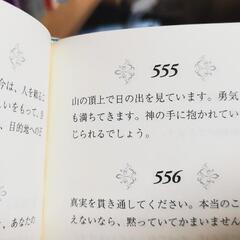 555
山の頂上で日の出を見ています。勇気
も満ちてきます。神の手に抱かれてい
じられるでしょう。
556
真実を貫き通してください。本当のこ
えないなら、黙っていてかまいません
今は、人を
いをもって、
、目的地への
、あなたの